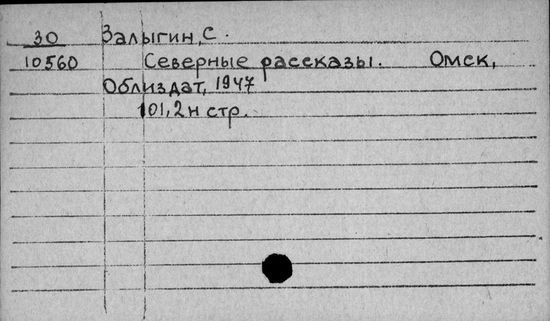 30 Залыгин, С.
10560 Северные рассказы. Омск,
Облиздат, 1947
101, 2н стр.